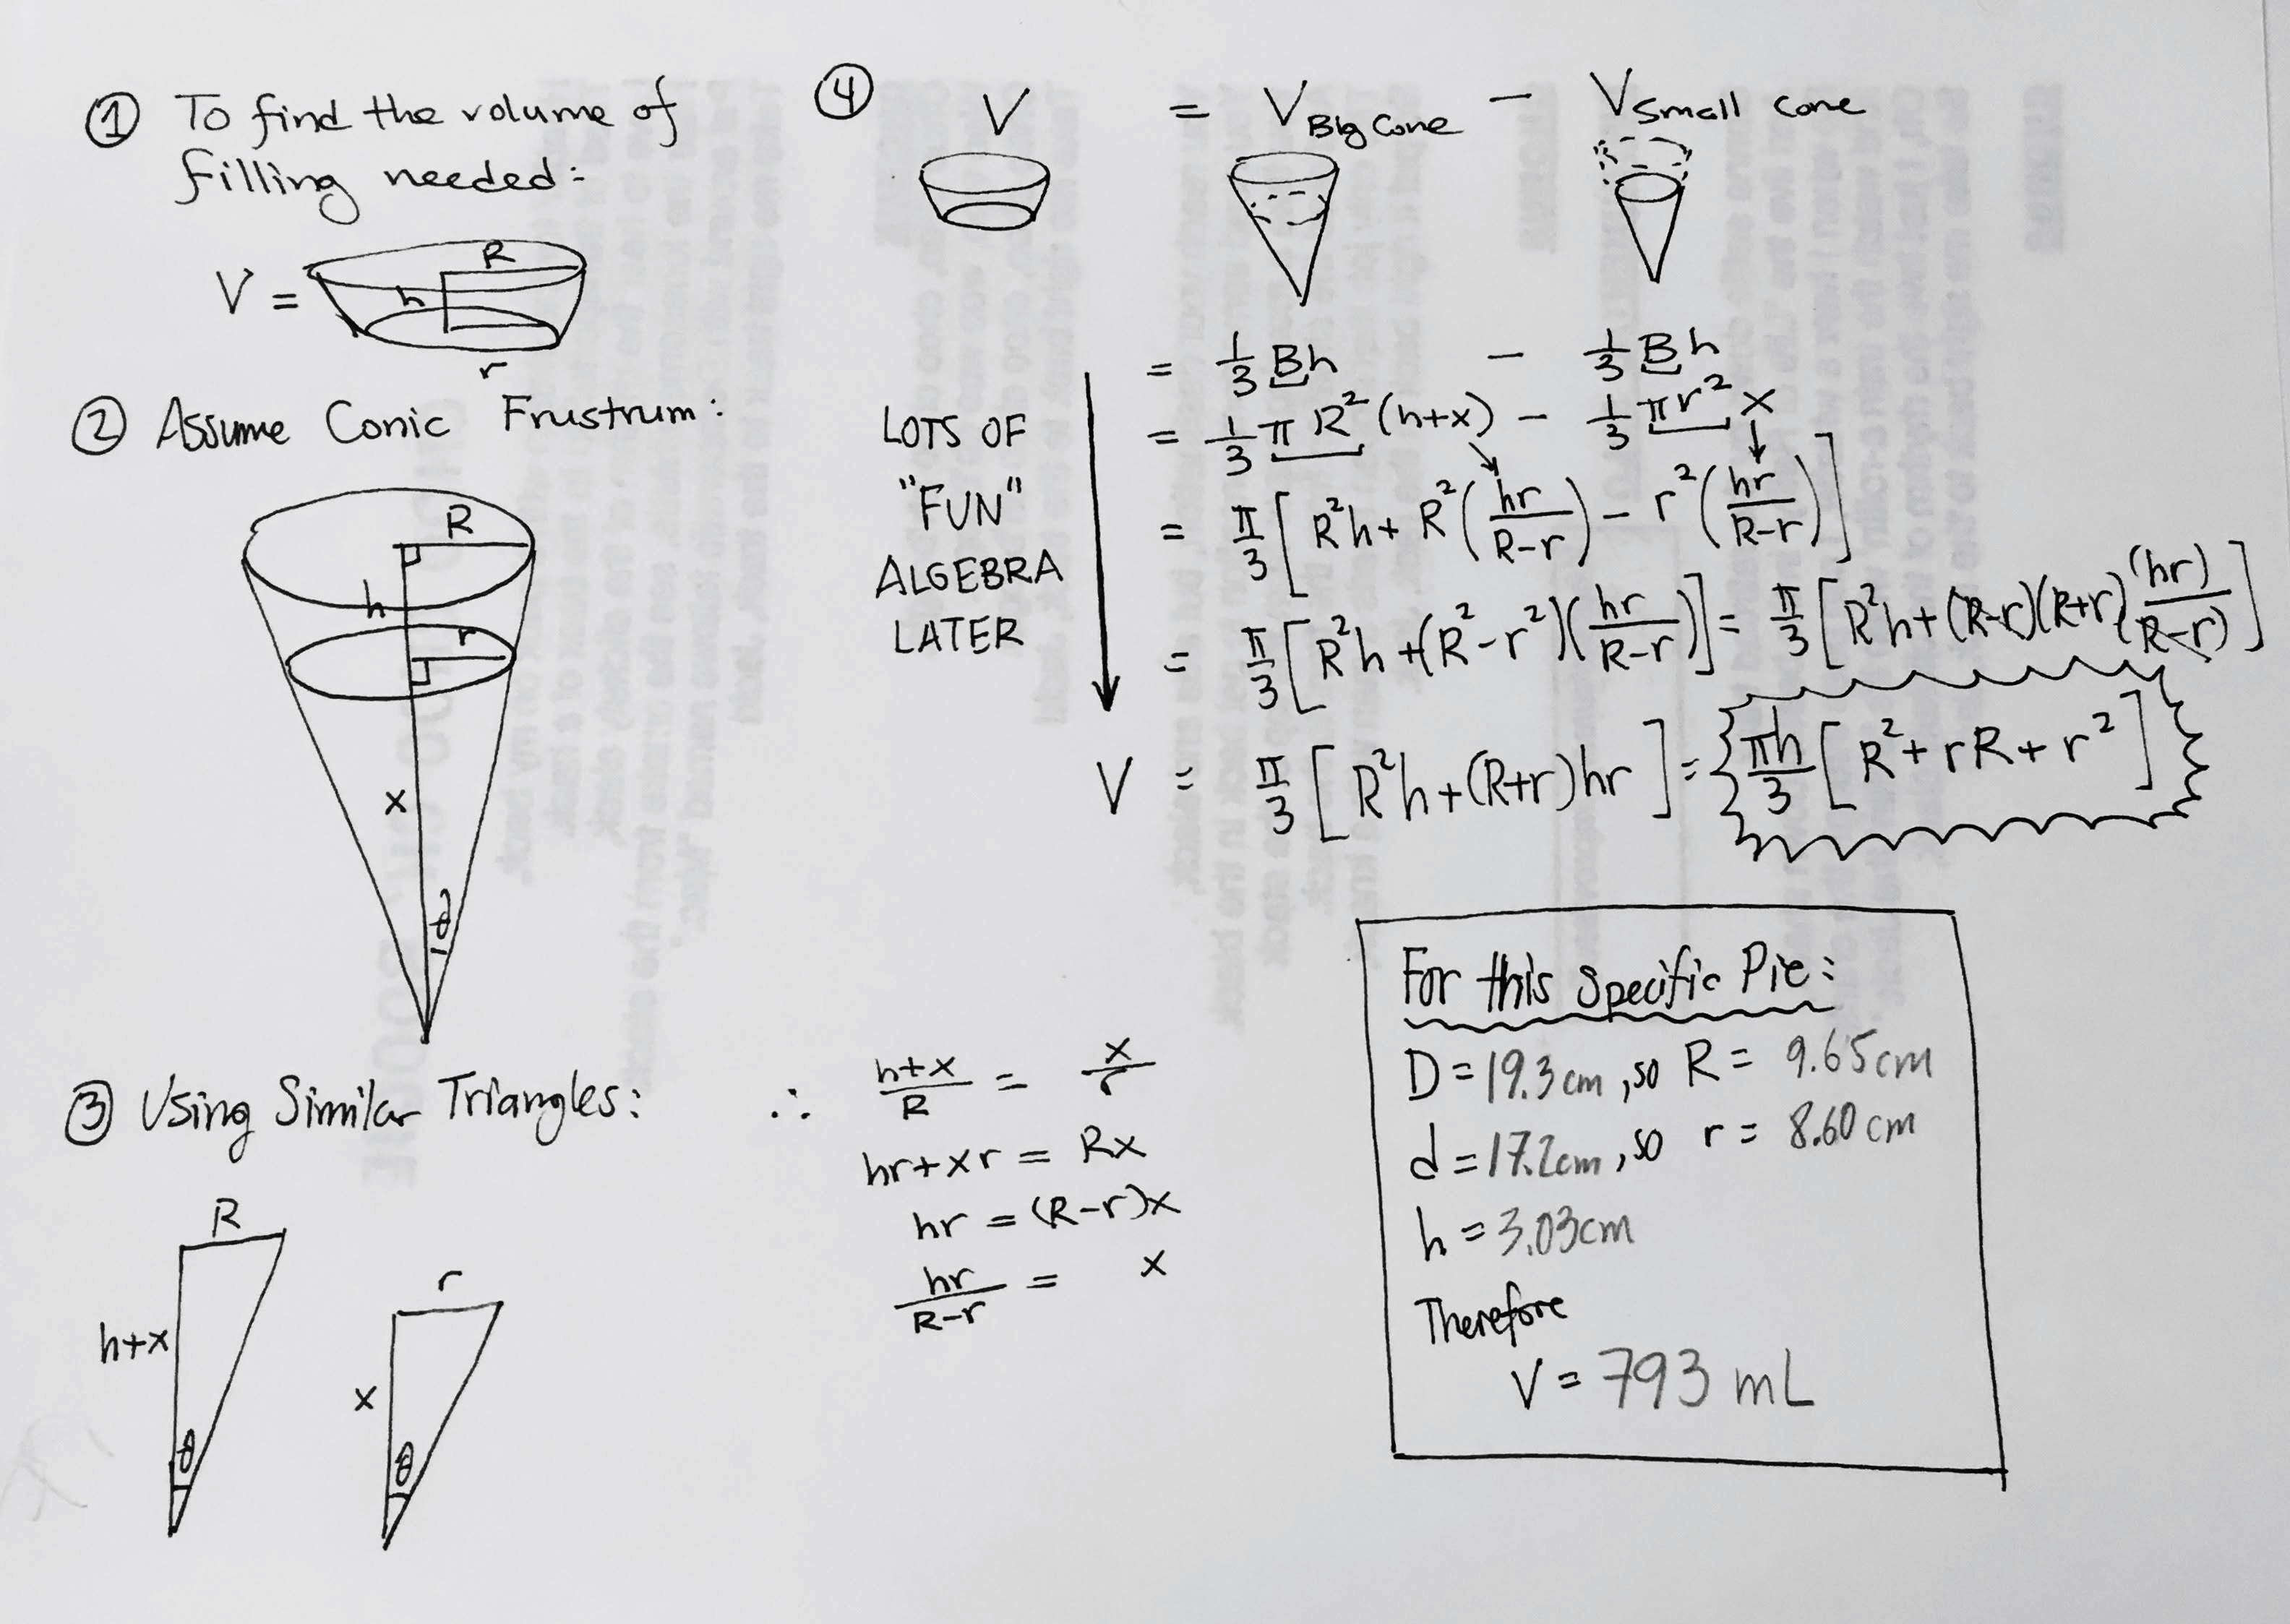 ① To find the volume of
filling needed:
V =
R
h
r
② Assume Conic Frustrum:
R
h
r
x
θ
③ Using Similar Triangles:
R
h+x
θ
r
x
θ
∴ h+x/R = x/r
hr+xr = Rx
hr = (R-r)x
hr/R-r = x
④ V = V Big Cone - V Small Cone
= 1/3 Bh - 1/3 Bh
= 1/3 π R² (h+x) - 1/3 πr² x
= π/3 [ R²h + R² (hr/R-r) - r² (hr/R-r) ]
= π/3 [ R²h + (R²-r²)(hr/R-r) ] = π/3 [ R²h + (R-r)(R+r) (hr)/(R-r) ]
V = π/3 [ R²h + (R+r)hr ] = πh/3 [ R² + rR + r² ]
LOTS OF
"FUN"
ALGEBRA
LATER
For this Specific Pie:
D = 19.3 cm, so R = 9.65 cm
d = 17.2 cm, so r = 8.60 cm
h = 3.03 cm
Therefore
V = 793 mL